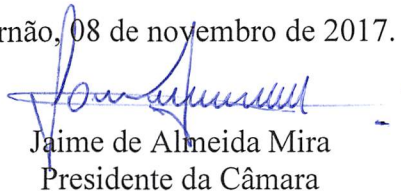 rnão, 08 de novembro de 2017.
Jaime de Almeida Mira
Presidente da Câmara